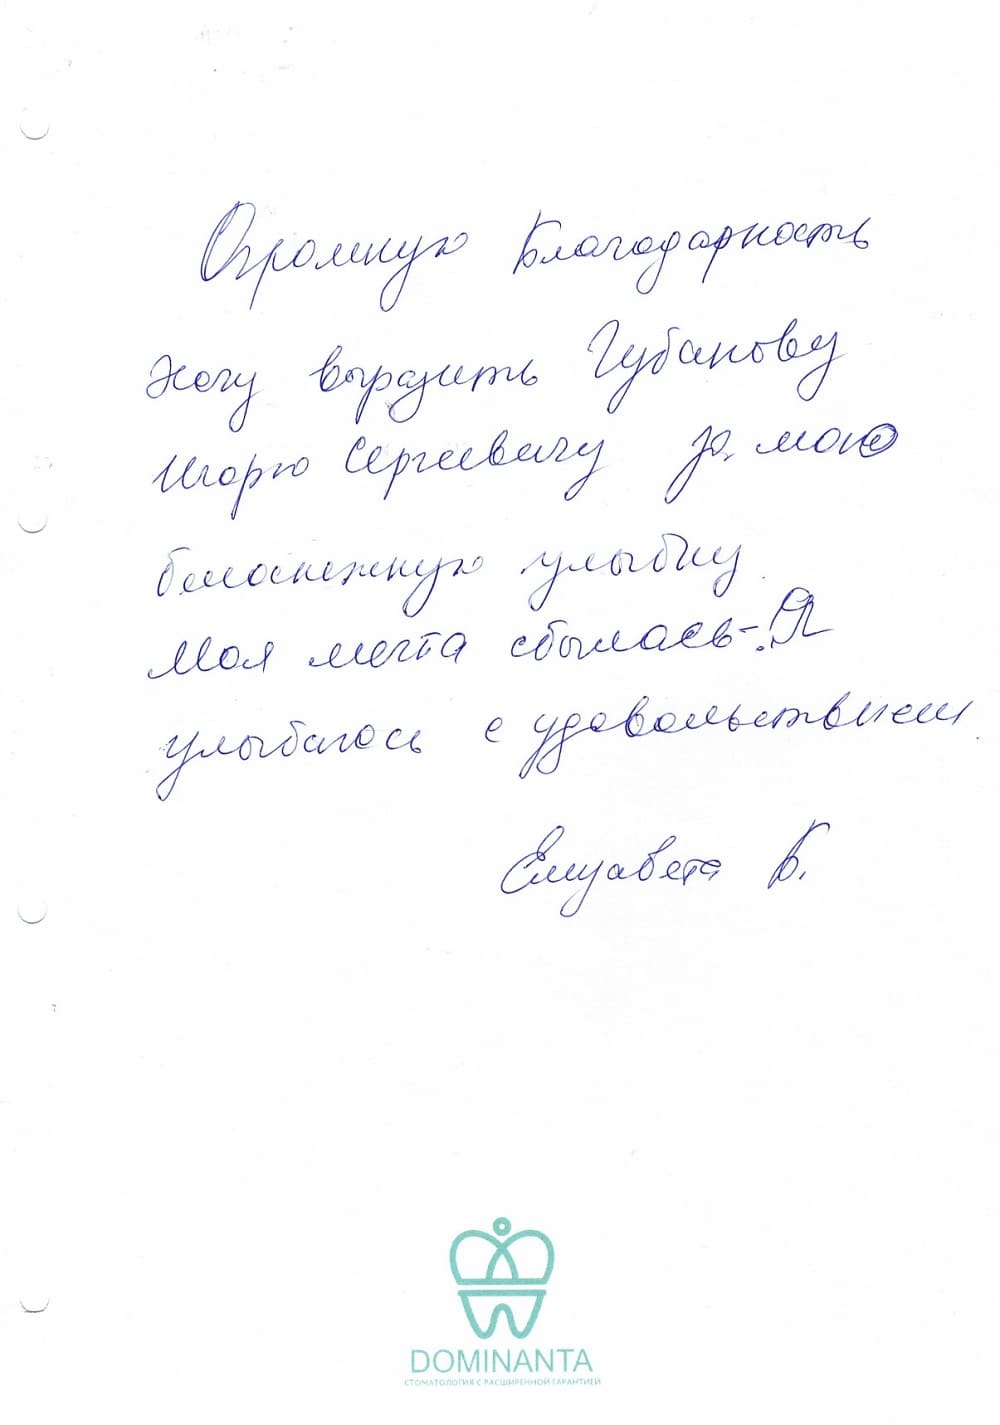 Огромную Благодарность
Хочу выразить Губанову
Игорю Сергеевичу за мою
белоснежную улыбку
Моя мечта сбылась-! Я
улыбаюсь с удовольствием
Елизавета Б.
DOMINANTA
СТОМАТОЛОГИЯ С РАСШИРЕННОЙ ГАРАНТИЕЙ